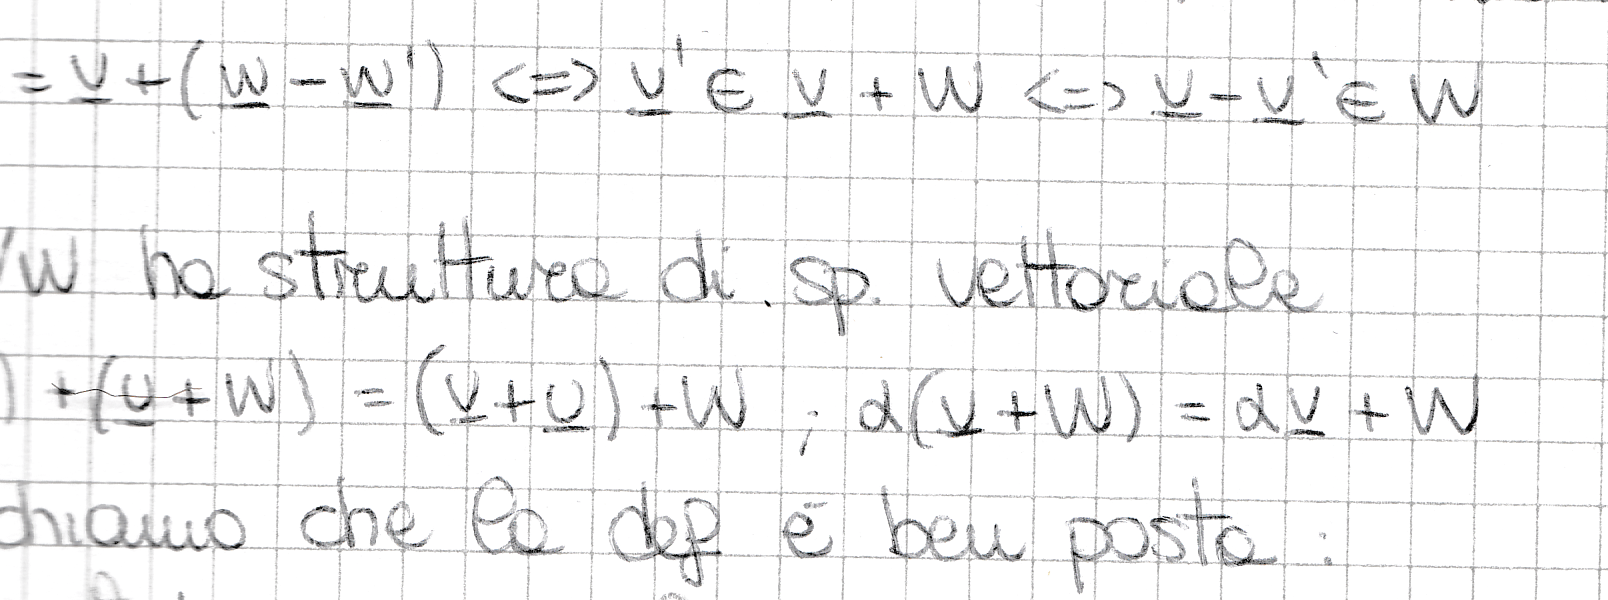 = v + (w - w') <=> v' ∈ v + W <=> v - v' ∈ W
/W ha struttura di sp. vettoriale
) + (u + W) = (v + u) + W ; α(v + W) = αv + W
chiamo che la def è ben posta :